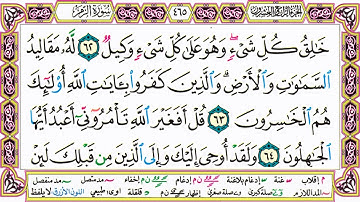 سورة الزمر ٤٦٥
خَٰلِقُ كُلِّ شَىْءٍ وَهُوَ عَلَىٰ كُلِّ شَىْءٍ وَكِيلٌ ٦٢ لَّهُۥ مَقَالِيدُ
ٱلسَّمَٰوَٰتِ وَٱلْأَرْضِ وَٱلَّذِينَ كَفَرُوا۟ بِـَٔايَٰتِ ٱللَّهِ أُو۟لَٰٓئِكَ
هُمُ ٱلْخَٰسِرُونَ ٦٣ قُلْ أَفَغَيْرَ ٱللَّهِ تَأْمُرُوٓنِّىٓ أَعْبُدُ أَيُّهَا
ٱلْجَٰهِلُونَ ٦٤ وَلَقَدْ أُوحِىَ إِلَيْكَ وَإِلَى ٱلَّذِينَ مِن قَبْلِكَ لَئِنْ